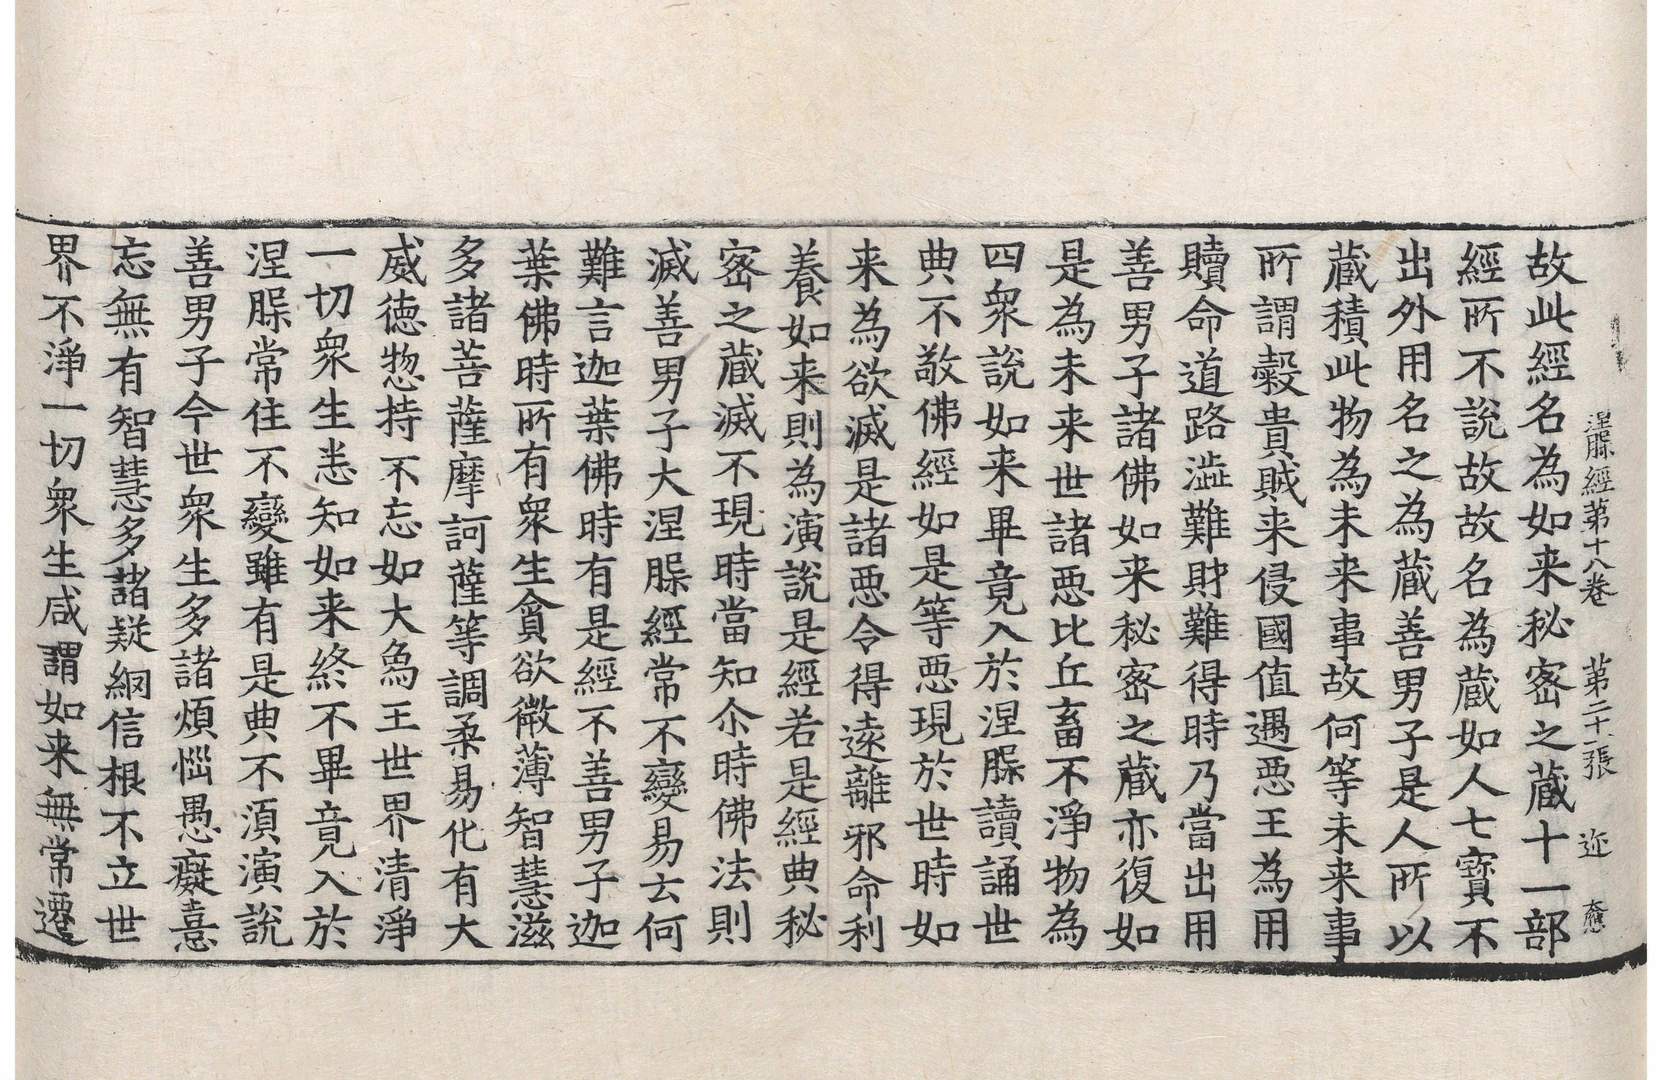 涅槃經第十八卷 第二十一張 迩
故此經名為如来秘密之蔵十一部
經所不說故故名為蔵如人七寳不
出外用名之為蔵善男子是人所以
蔵積此物為未来事故何等未来事
所謂穀貴賊来侵國值遇恶王為用
贖命道路澁難財難得時乃當出用
善男子諸佛如来秘密之蔵亦復如
是為未来世諸恶比丘畜不淨物為
四衆說如来畢竟入於涅槃讀誦世
典不敬佛經如是等恶現於世時如
来為欲滅是諸恶令得遠離邪命利
養如来則為演說是經若是經典秘
密之蔵滅不現時當知尒時佛法則
滅善男子大涅槃經常不變易云何
難言迦葉佛時有是經不善男子迦
葉佛時所有衆生貪欲微薄智慧滋
多諸菩薩摩訶薩等調柔易化有大
威德惣持不忘如大象王世界清淨
一切衆生悉知如来終不畢竟入於
涅槃常住不變雖有是典不須演說
善男子今世衆生多諸煩惱愚癡憙
忘無有智慧多諸疑網信根不立世
界不淨一切衆生咸謂如来無常遷